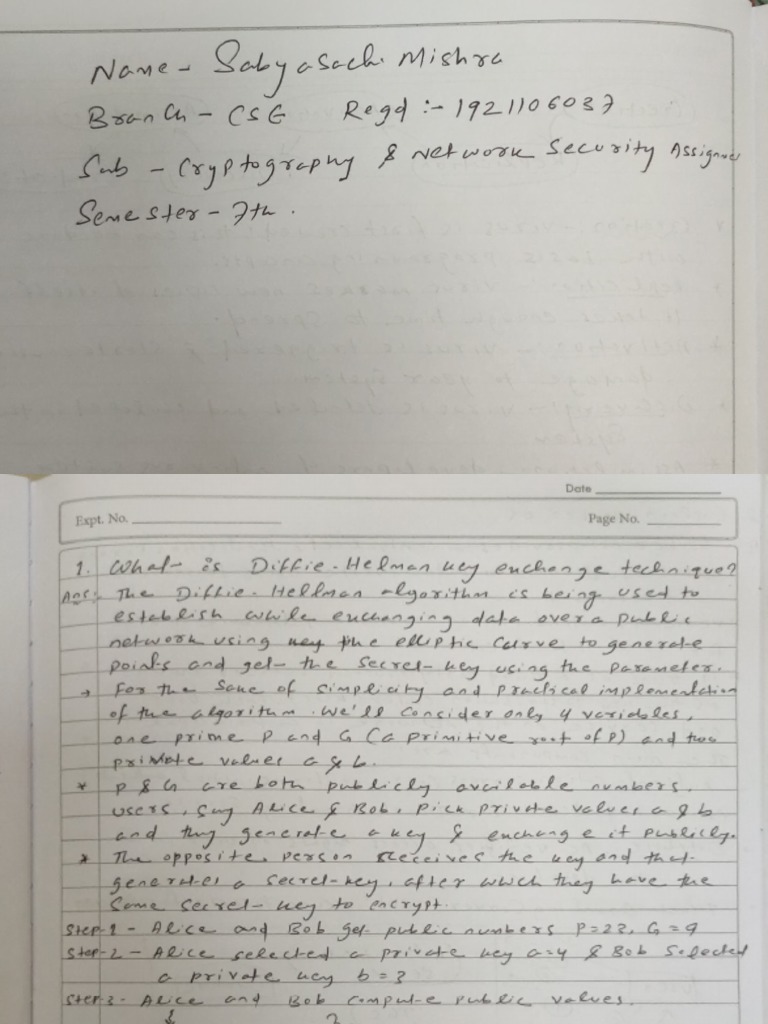 Name - Sabyasachi Mishra
Branch - CSE Regd :- 1921106037
Sub - Cryptography & Network Security Assignment
Semester - 7th.
Date
Expt. No.
Page No.
1. What is Diffie-Helman key exchange technique?
Ans:- The Diffie-Hellman algorithm is being used to
establish while exchanging data over a public
network using the elliptic curve to generate
points and get the secret-key using the parameter.
→ For the sake of simplicity and practical implementation
of the algorithm. We'll consider only 4 variables,
one prime P and G (a primitive root of P) and two
private values a & b.
* P & G are both publicly available numbers.
users, say Alice & Bob, Pick private values a & b
and they generate a key & exchange it publicly.
* The opposite person receives the key and that
generates a secret-key, after which they have the
same secret-key to encrypt.
Step-1 - Alice and Bob get public numbers P=23, G=9
Step-2 - Alice selected a private key a=4 & Bob selected
a private key b=3
Step-3 - Alice and Bob compute public values.